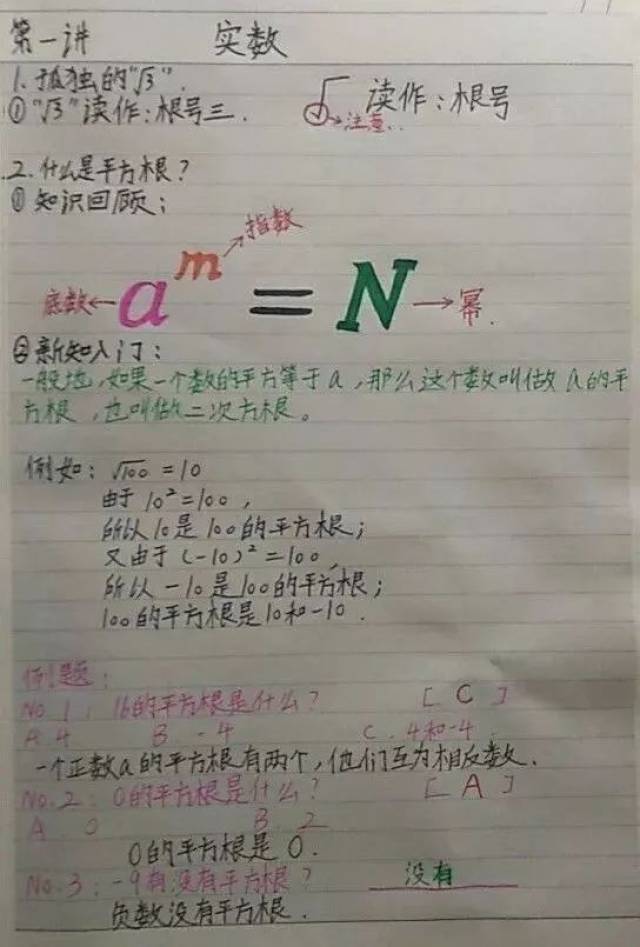 第一讲 实数
1.孤独的"√3".
①"√3"读作:根号三. √ 读作:根号
→注意..
2.什么是平方根?
①知识回顾:
→指数
底数←a^m = N→幂.
②新知入门:
一般地,如果一个数的平方等于a,那么这个数叫做a的平
方根,也叫做二次方根。
例如:√100=10
由于10²=100,
所以10是100的平方根;
又由于(-10)²=100,
所以-10是100的平方根;
100的平方根是10和-10.
例题:
No.1:16的平方根是什么? [ C ]
A 4 B -4 C.4和-4
一个正数a的平方根有两个,他们互为相反数.
No.2:0的平方根是什么? [ A ]
A.0 B.2
0的平方根是0.
No.3:-9有没有平方根? 没有
负数没有平方根.